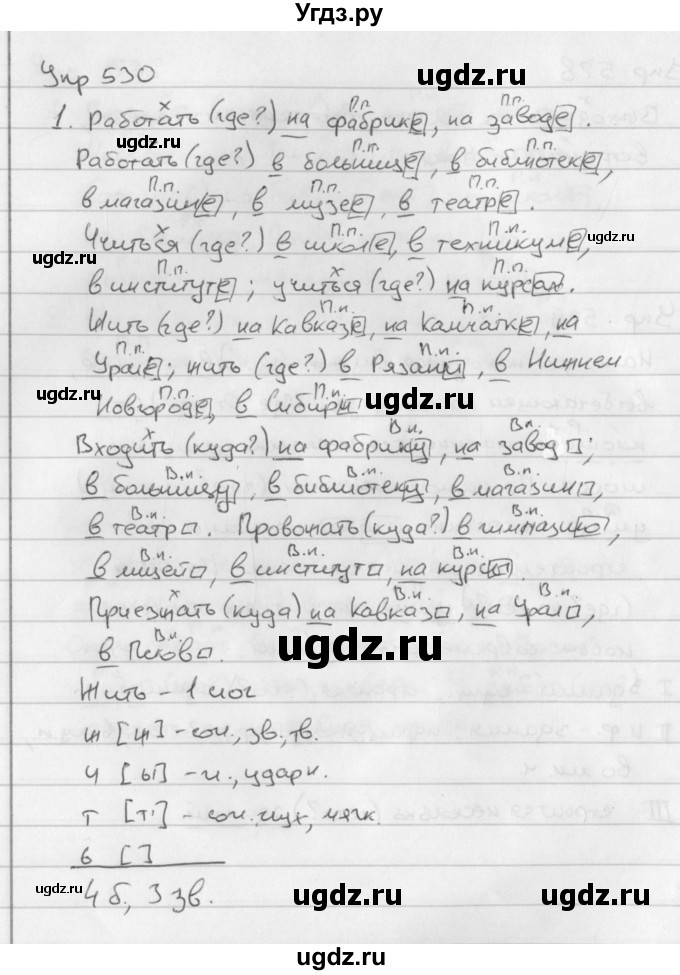 Угдз.ру
Упр 530
1. Работать (где?) на фабрике, на заводе.
Работать (где?) в больнице, в библиотеке,
в магазине, в музее, в театре.
Учиться (где?) в школе, в техникуме,
в институте; учиться (где?) на курсах.
Жить (где?) на Кавказе, на Камчатке, на
Урале; жить (где?) в Рязани, в Нижнем
Новгороде, в Сибири
Входить (куда?) на фабрику, на завод;
в больницу, в библиотеку, в магазин,
в театр. Провожать (куда?) в гимназию,
в лицей, в институт, на курсы.
Приезжать (куда) на Кавказ, на Урал,
в Псков.
Жить - 1 слог
ж [ж] - сог., зв., тв.
и [ы] - гл., ударн.
т [т'] - сог. глух, мягк.
ь [ ]
4 б., 3 зв.
ugdz.ru
©ugdz.ru